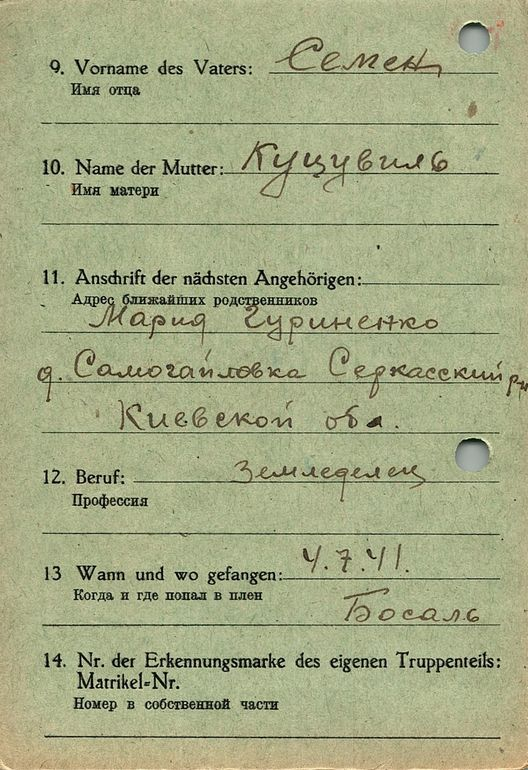 9. Vorname des Vaters: Семен
Имя отца
10. Name der Mutter: Куцувиль
Имя матери
11. Anschrift der nächsten Angehörigen:
Адрес ближайших родственников
Мария Гуриненко
д. Самогайловка Серкасский рн
Киевской обл.
12. Beruf: Земледелец
Профессия
13 Wann und wo gefangen: 4.7.41.
Когда и где попал в плен
Босаль
14. Nr. der Erkennungsmarke des eigenen Truppenteils:
Matrikel-Nr.
Номер в собственной части